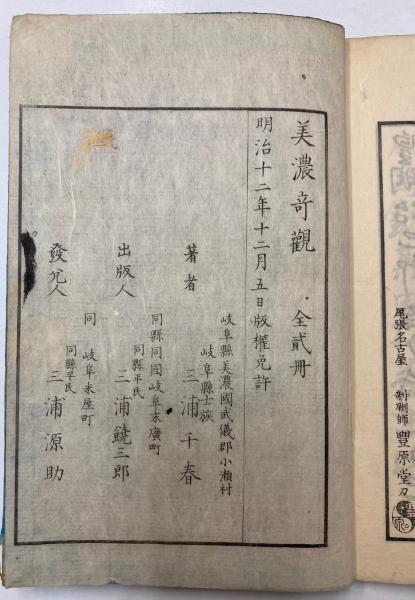 尾張名古屋
剞劂師 豐原堂刀
美濃奇觀 全貳册
明治十二年十二月五日版權免許
岐阜縣美濃國武儀郡小瀨村
岐阜縣士族
著者 三浦千春
同縣同國岐阜本廣町
同縣平民
出版人 三浦饒三郎
同 岐阜米屋町
同縣平民
發兌人 三浦源助